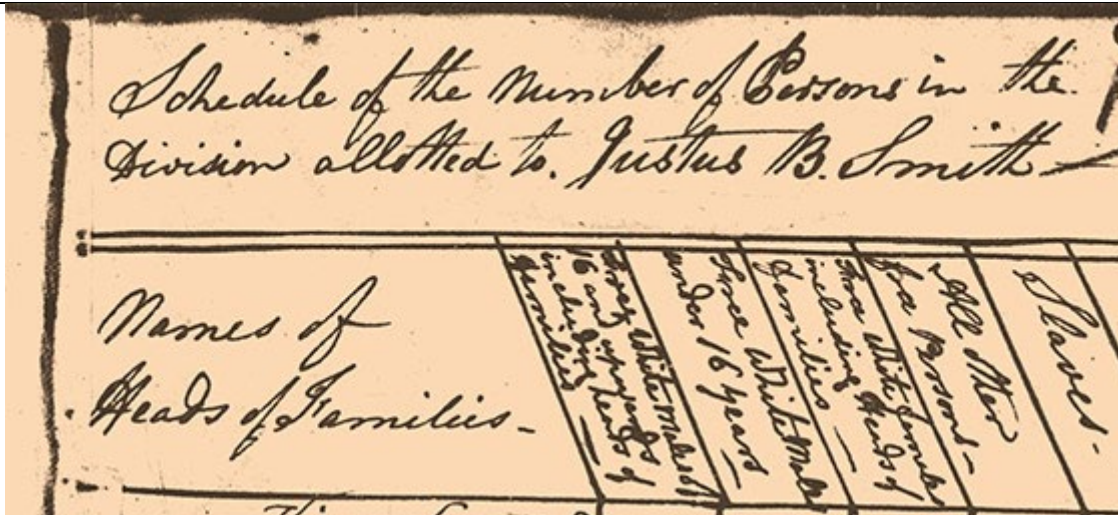 Schedule of the Number of Persons in the
Division allotted to. Justus B. Smith
Names of
Heads of Families -
Free White Males of
16 and upwards
including heads of
Families
Free White Males
under 16 years
Free White Females
including Heads of
Families
All other
free Persons -
Slaves -